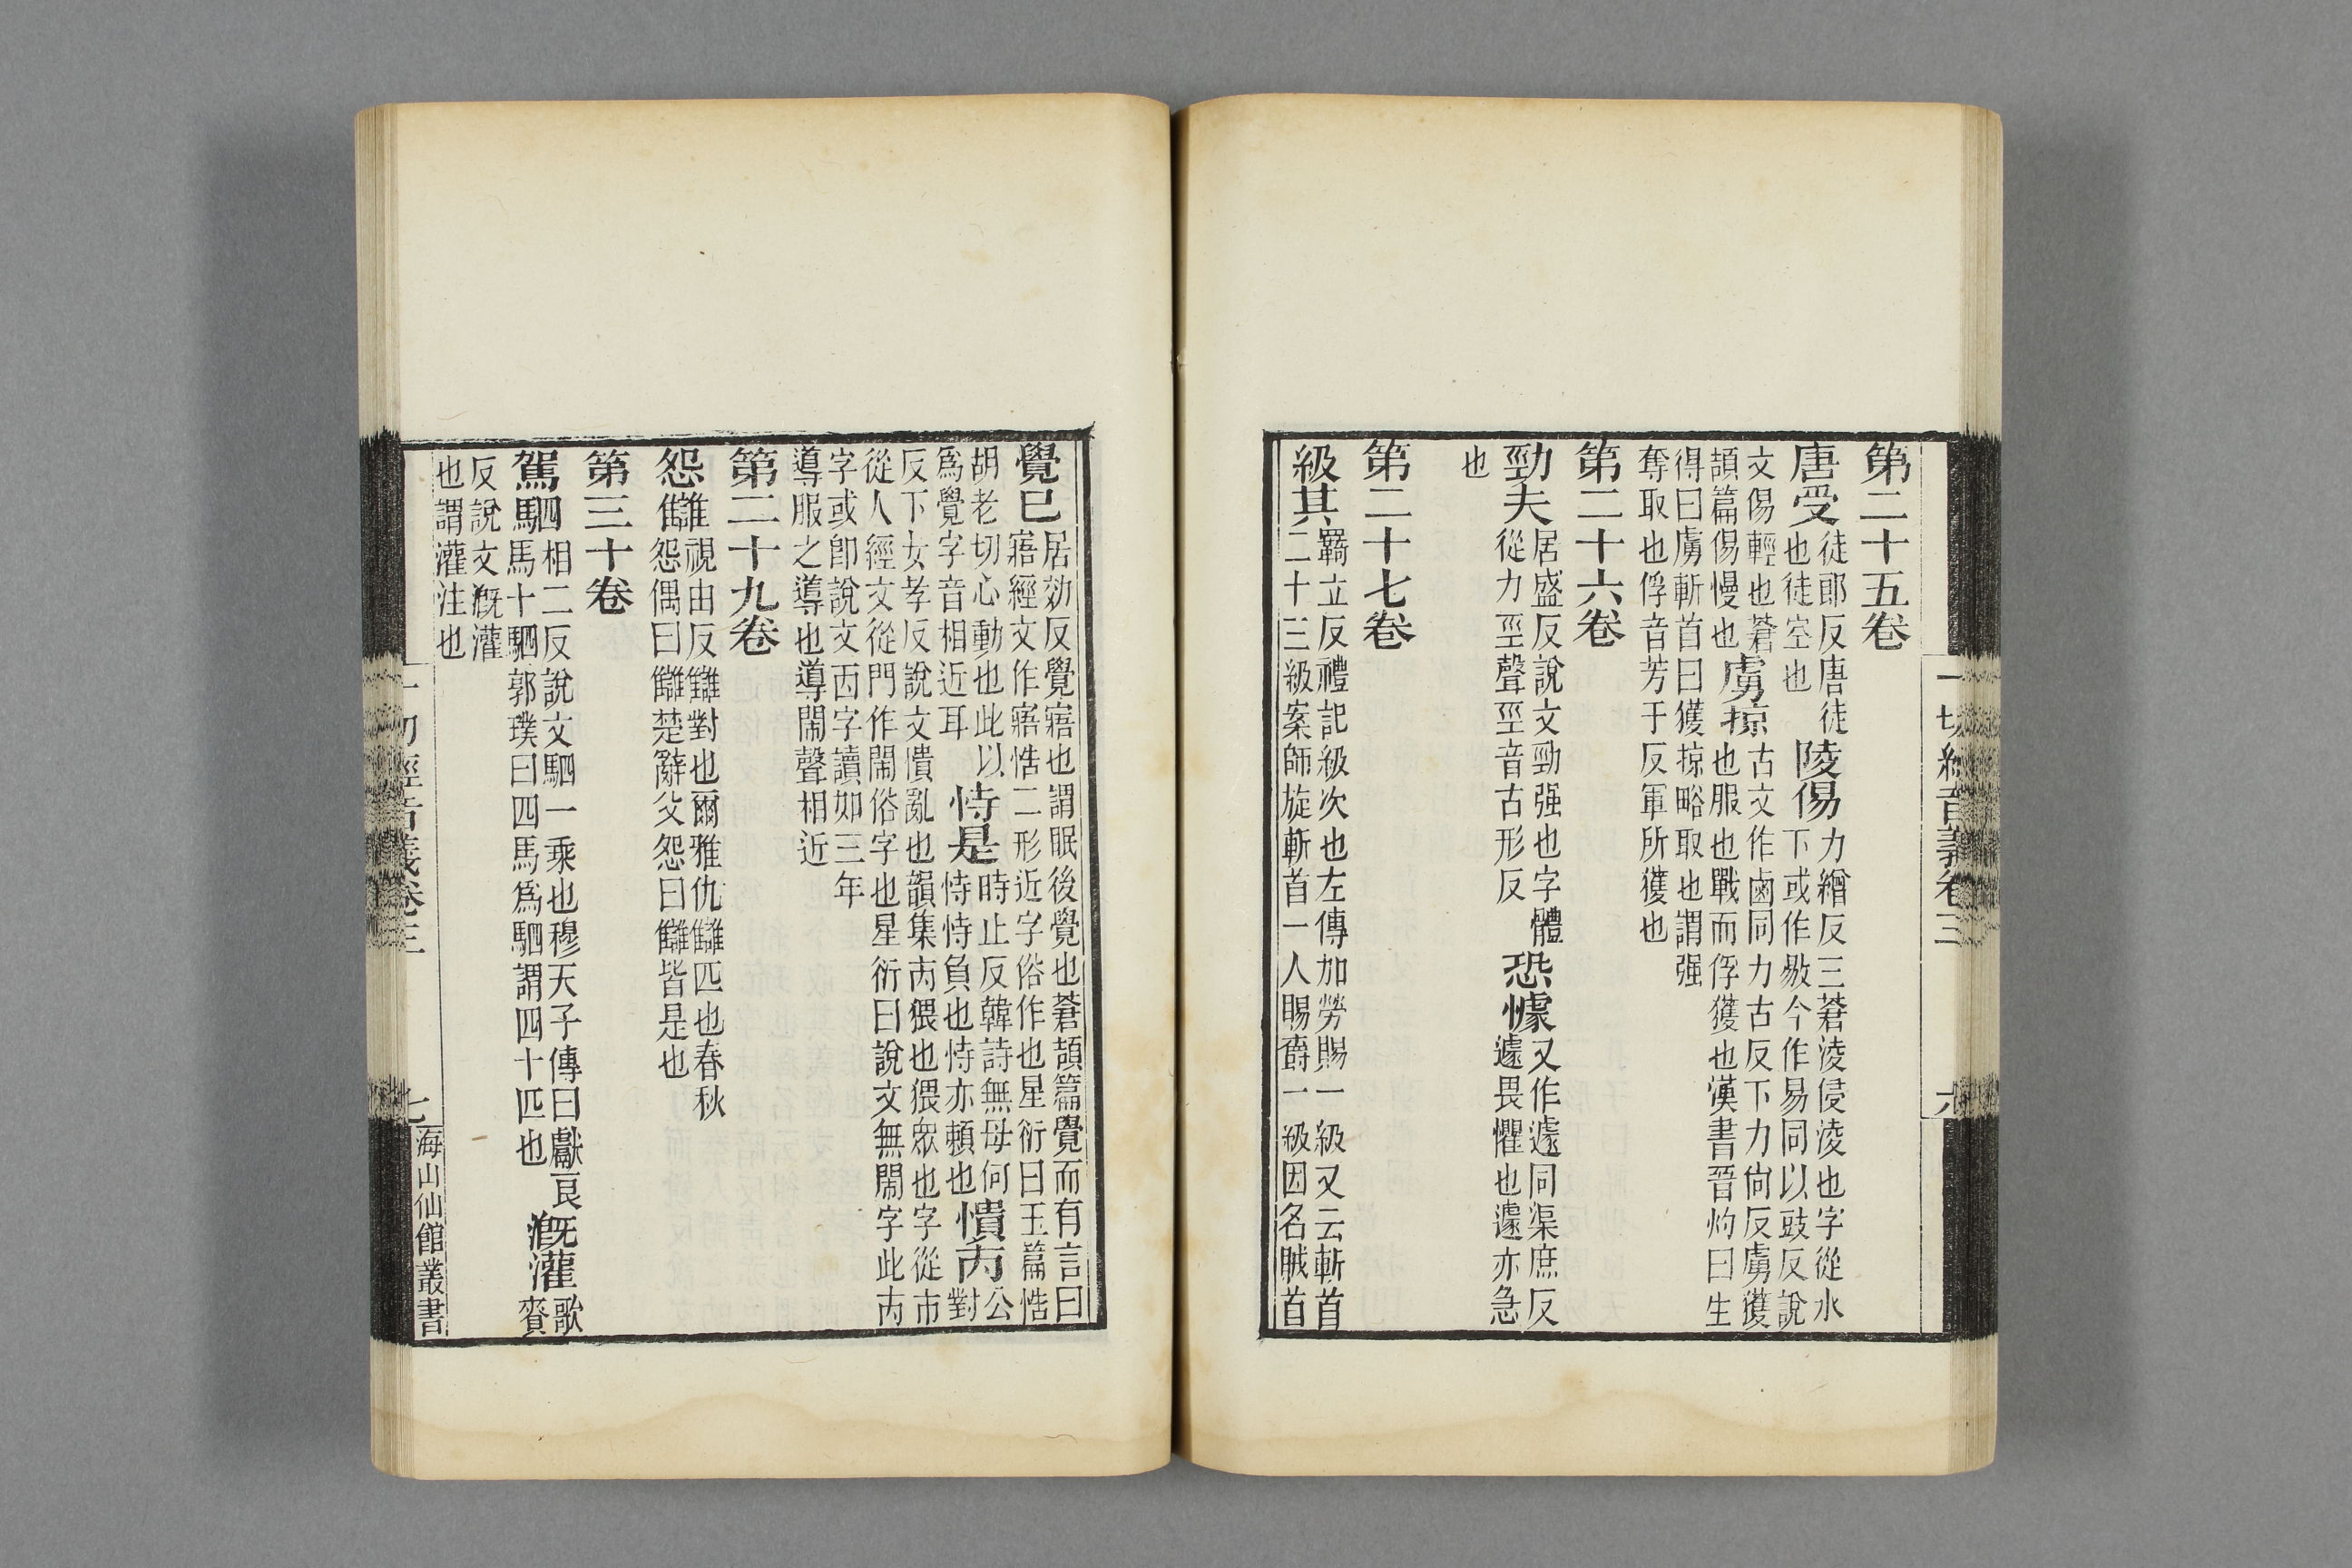 一切經音義卷三
六
第二十五卷
唐受徒郎反唐徒
也徒空也
陵傷力繒反三蒼淩侵淩也字從水
下或作敭今作易同以豉反說
文傷輕也蒼
頡篇傷慢也
虜掠古文作鹵同力古反下力尙反虜獲
也服也戰而俘獲也漢書晉灼曰生
得曰虜斬首曰獲掠略取也謂强
奪取也俘音芳于反軍所獲也
第二十六卷
勁夫居盛反說文勁强也字體
從力巠聲巠音古形反
恐懅又作遽同渠庶反
遽畏懼也遽亦急
也
第二十七卷
級其羇立反禮記級次也左傳加勞賜一級又云斬首
二十三級案師旋斬首一人賜爵一級因名賊首
覺已居効反覺寤也謂眠後覺也蒼頡篇覺而有言曰
寤經文作寤悎二形近字俗作也星衍曰玉篇悎
胡老切心動也此以
爲覺字音相近耳
恃是時止反韓詩無母何
恃恃負也恃亦賴也
憒㕻公對
反下女孝反說文憒亂也韻集㕻猥也猥衆也字從市
從人經文從門作閙俗字也星衍曰說文無閙字此㕻
字或卽說文㕯字讀如三年
導服之導也導閙聲相近
第二十九卷
怨讎視由反讎對也爾雅仇讎匹也春秋
怨偶曰讎楚辭父怨曰讎皆是也
第三十卷
駕駟相二反說文駟一乘也穆天子傳曰獻良
馬十駟郭璞曰四馬爲駟謂四十匹也
漑灌歌賚
反說文漑灌
也謂灌注也
一切經音義卷三
七
海山仙館叢書